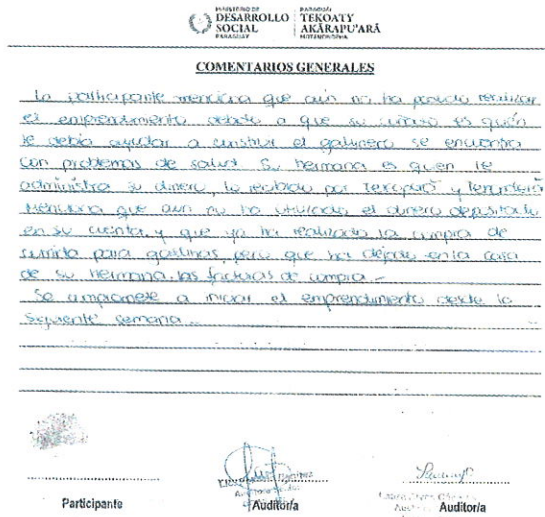 MINISTERIO DE
DESARROLLO
SOCIAL
PARAGUAY
PARAGUÁI
TEKOATY
AKÃRAPU'ARÃ
MOTENONDEHA
COMENTARIOS GENERALES
La participante menciona que aún no ha podido realizar
el emprendimiento debido a que su cuñado es quién
le debía ayudar a construir el gallinero se encuentra
con problemas de salud. Su hermana es quien le
administra su dinero, lo recibido por Tekoporã y
Menciona que aún no ha utilizado el dinero depositado
en su cuenta, y que ya ha realizado la compra de
para gallinas, pero que ha dejado en la casa
de su hermana las facturas de compra.-
Se compromete a iniciar el emprendimiento desde la
siguiente semana.-
Participante
Auditor/a
Auditor/a